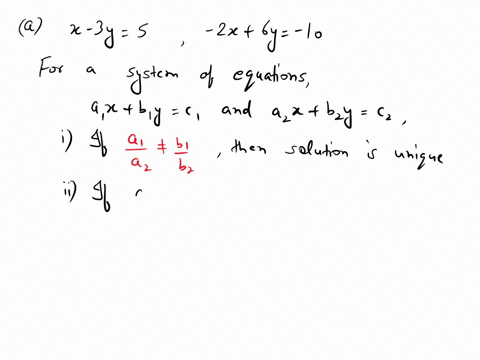 (a) x-3y=5 , -2x+6y=-10
For a system of equations,
a₁x+b₁y=c₁ and a₂x+b₂y=c₂,
i) If a₁/a₂ ≠ b₁/b₂ , then solution is unique
ii) If